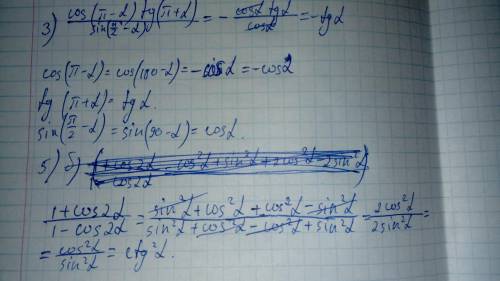 3) cos(π-α) tg(π+α) / sin(π/2-α) = - cosα tgα / cosα = -tgα
cos(π-α) = cos(180-α) = -cosα = -cosα
tg(π+α) = tgα.
sin(π/2-α) = sin(90-α) = cosα.
5) б)
1+cos2α / 1-cos2α = sin²α+cos²α+cos²α-sin²α / sin²α+cos²α-cos²α+sin²α = 2cos²α / 2sin²α =
= cos²α / sin²α = ctg²α.